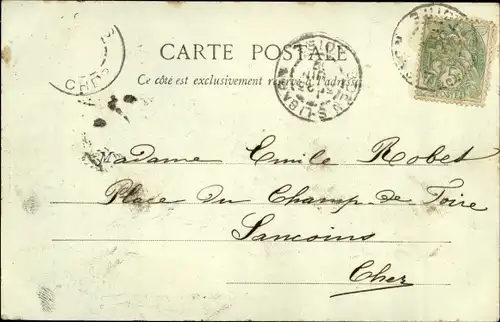 CARTE POSTALE
Ce côté est exclusivement réservé à l'adresse
Madame Emile Robet
Place du Champ-de Foire
Sancoins
Cher